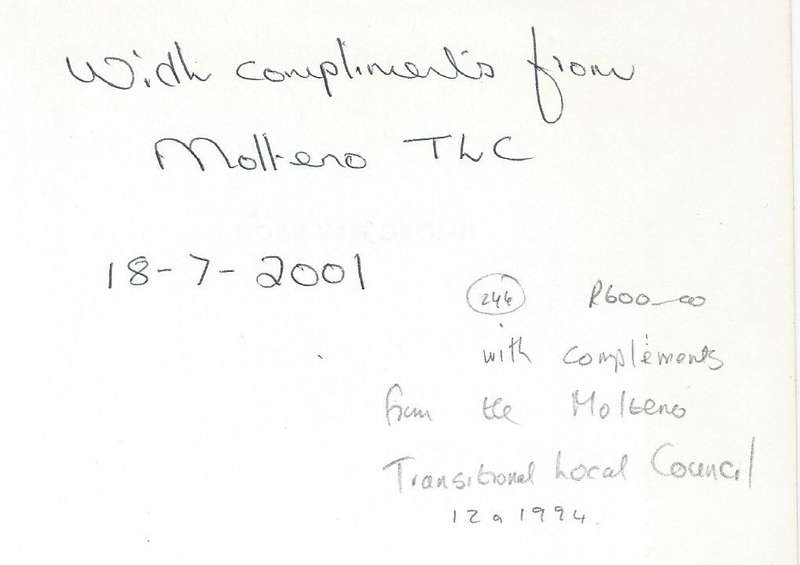 With compliments from
Molteno TLC
18-7-2001
246 R600-00
with compliments
from the Molteno
Transitional Local Council
12 a 1994.